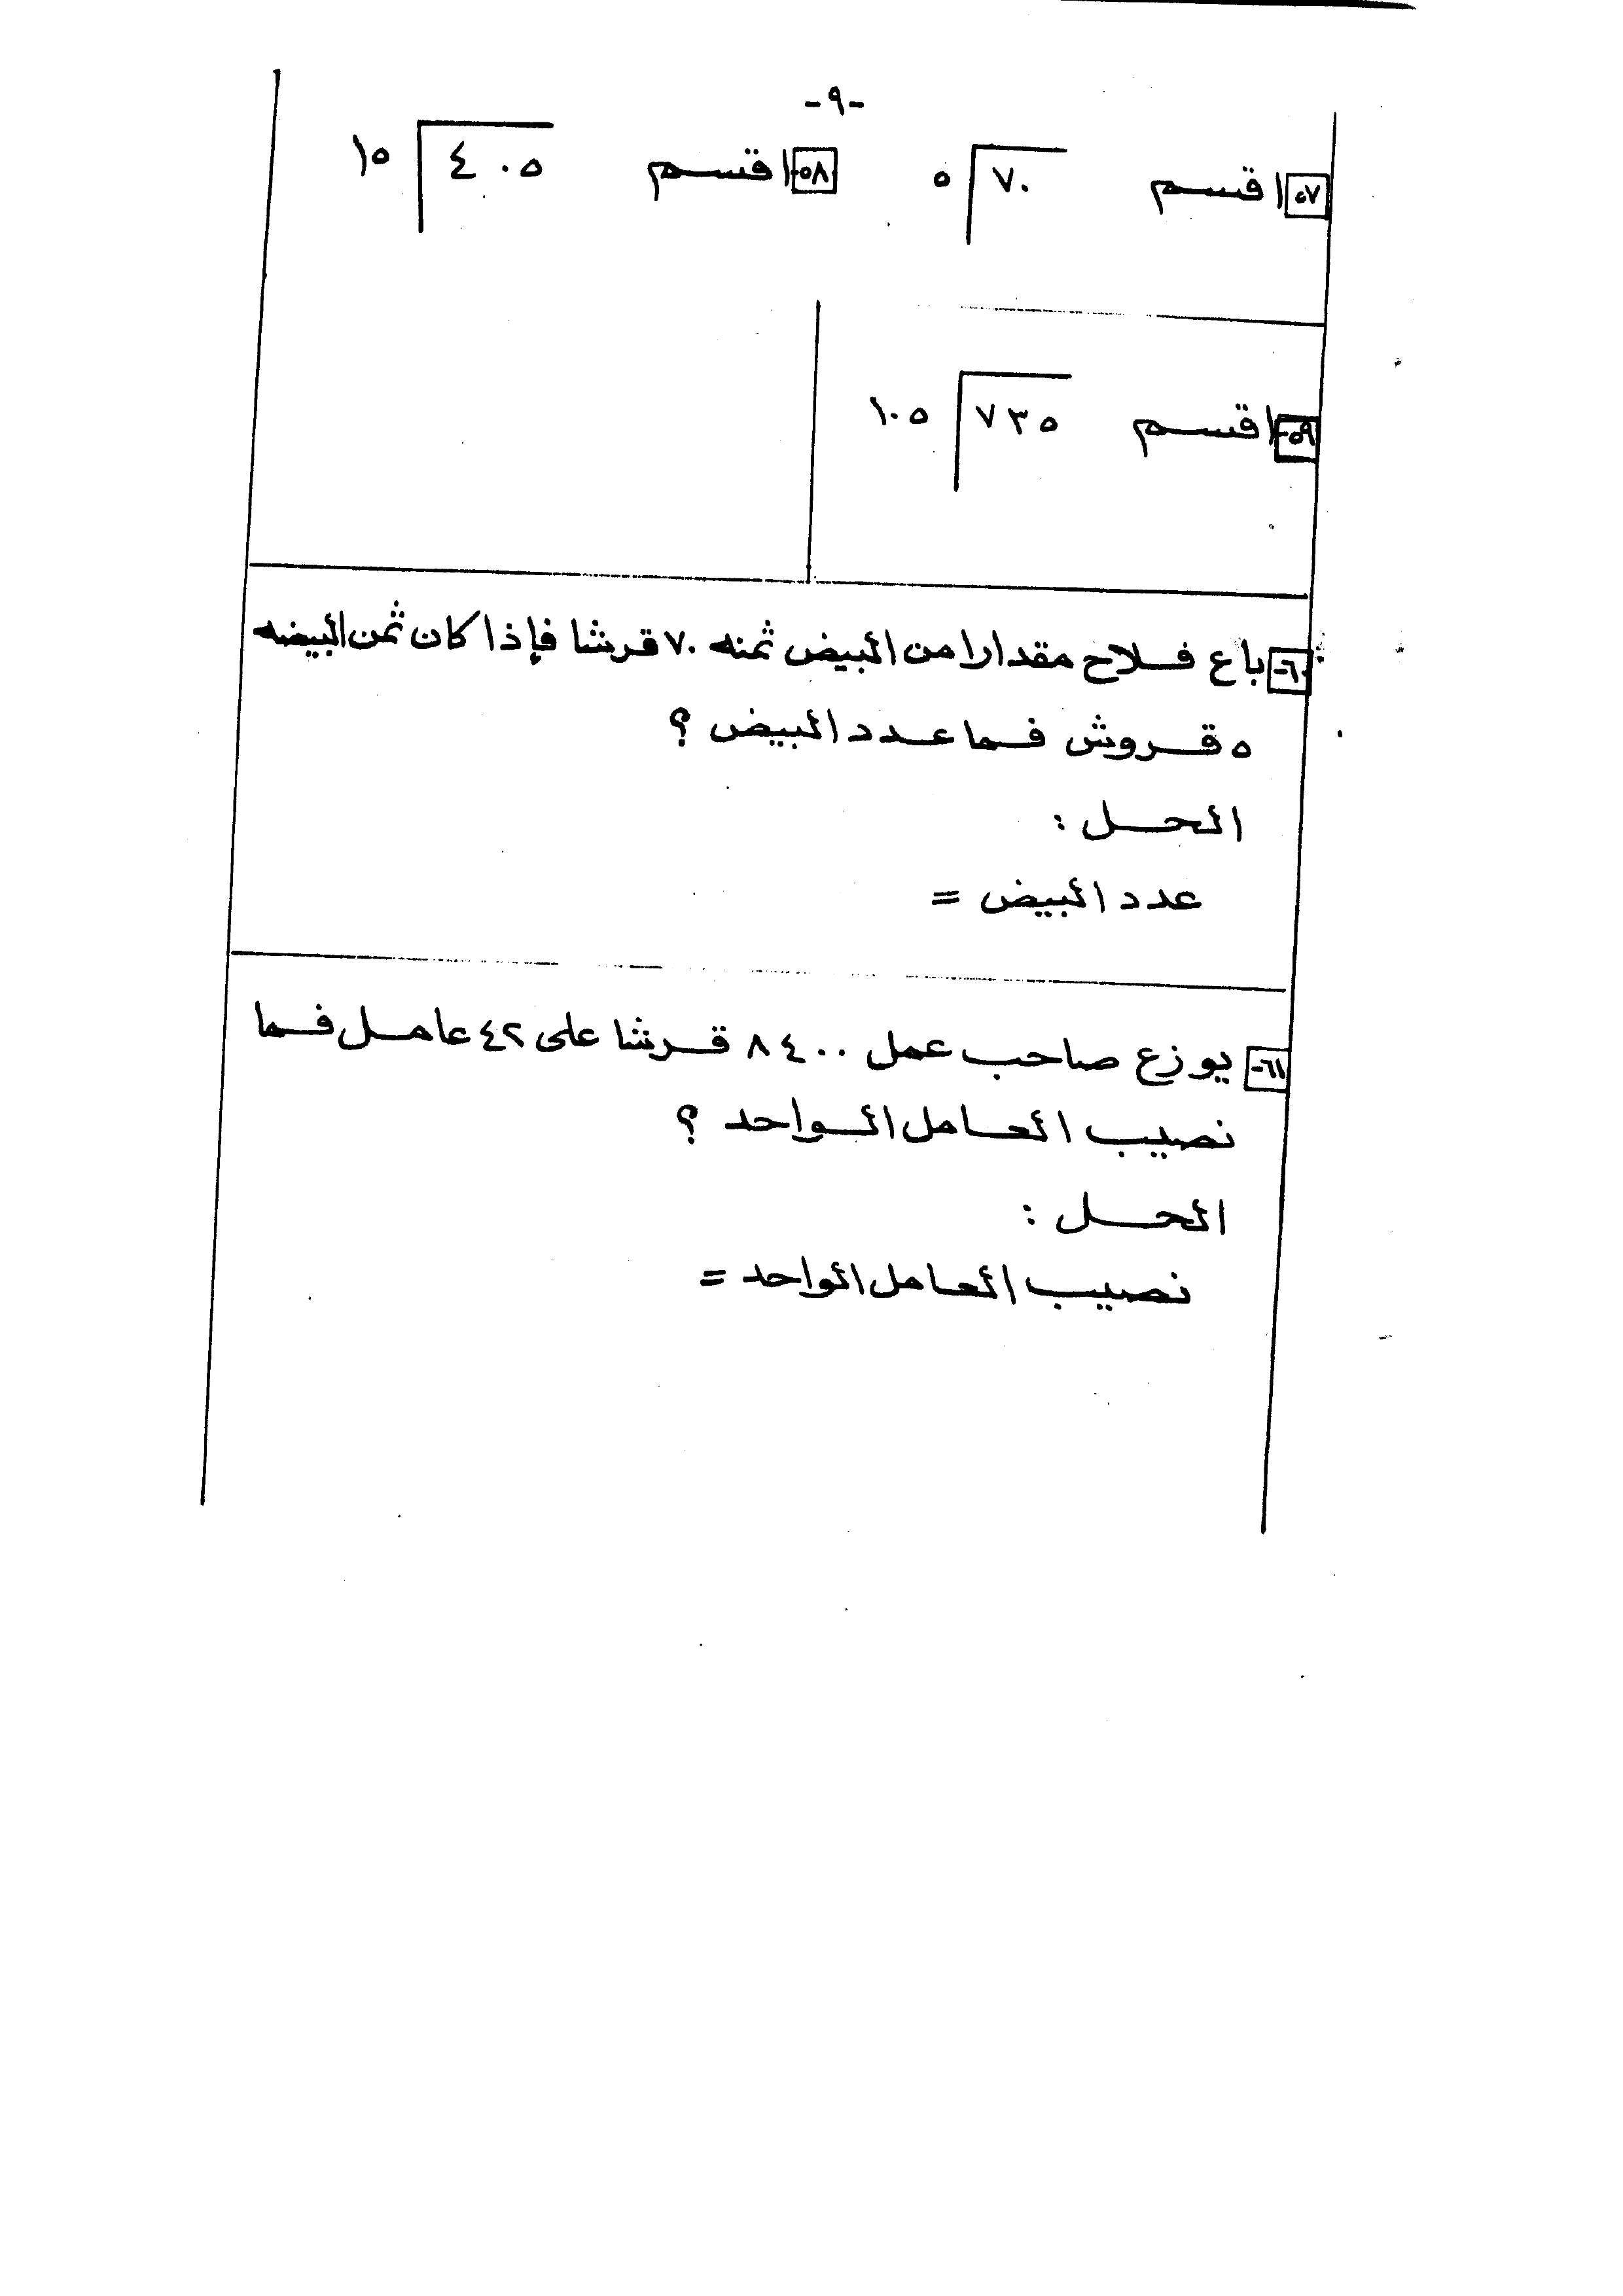 -٩-
٥٧ اقسم ٧٠ ٥
٥٨- اقسم ٤٠٥ ١٥
٥٩- اقسم ٧٣٥ ١٠٥
٦٠- باع فلاح مقدارا من البيض ثمنه ٧٠ قرشا فإذا كان ثمن البيضه
٥ قروش فما عدد البيض ؟
الحل :
عدد البيض =
٦١- يوزع صاحب عمل ٨٤٠٠ قرشا على ٤٢ عامل فما
نصيب العامل الواحد ؟
الحل :
نصيب العامل الواحد =